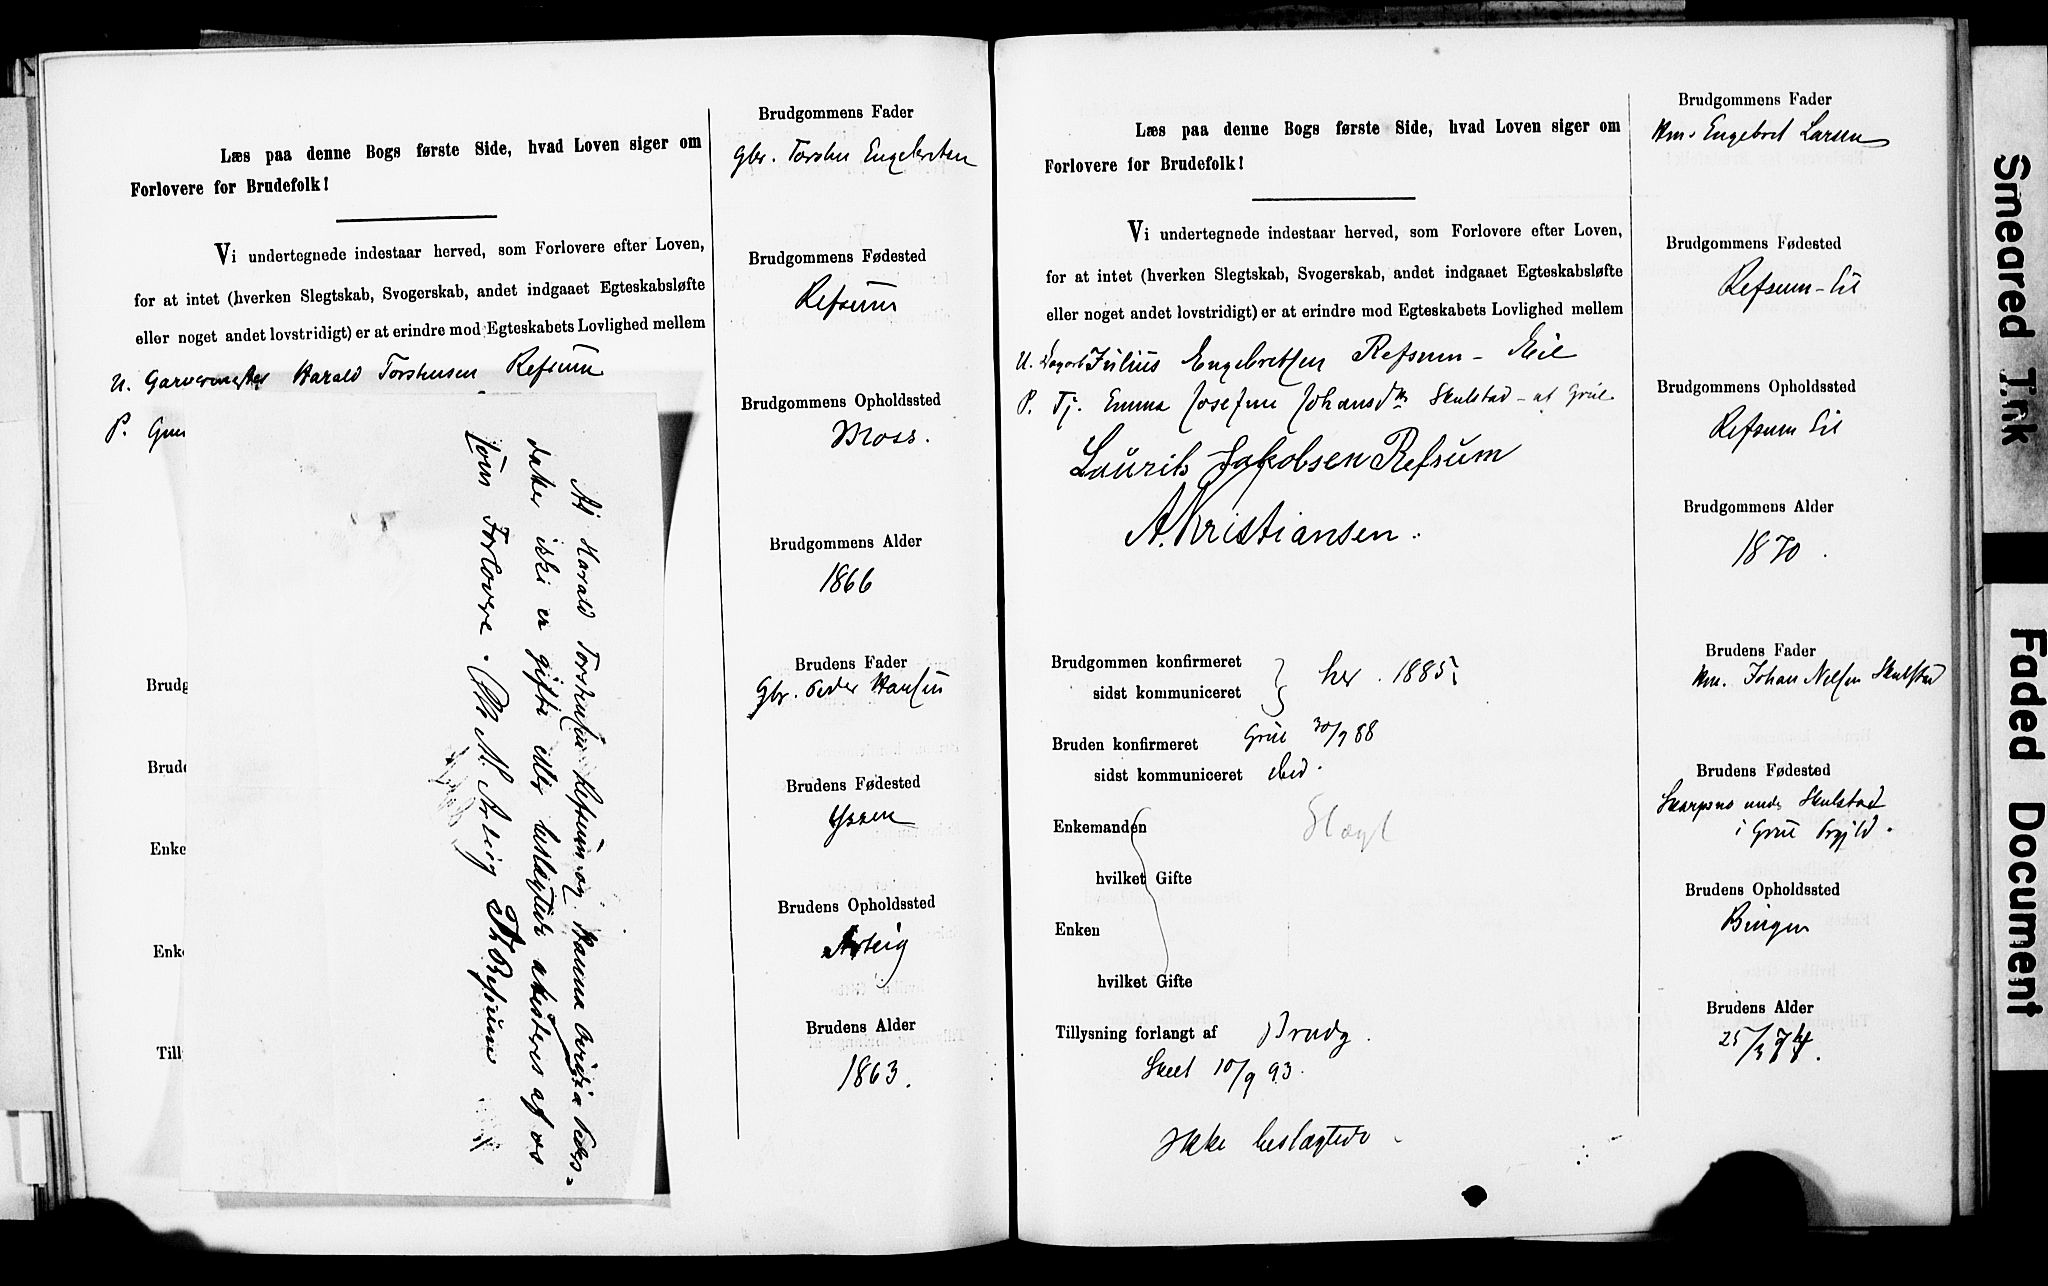 Læs paa denne Bogs første Side, hvad Loven siger om
Forlovere for Brudefolk!
Vi undertegnede indestaar herved, som Forlovere efter Loven,
for at intet (hverken Slegtskab, Svogerskab, andet indgaaet Egteskabsløfte
eller noget andet lovstridigt) er at erindre mod Egteskabets Lovlighed mellem
U. Garvermester Harald Torstensen Refsum
P.
At Harald Torstensen Refsum og Hanna Peders=
datter ikke er gifte eller beslægtede atesteres af os
som Forlovere.
Brudg
Brude
Enke
Enke
Till
Brudgommens Fader
Gbr. Torsten Engebretsen
Brudgommens Fødested
Refsum
Brudgommens Opholdssted
Moss.
Brudgommens Alder
1866
Brudens Fader
Gbr. Peder Hansen
Brudens Fødested
Brudens Opholdssted
Arteig
Brudens Alder
1863.
Læs paa denne Bogs første Side, hvad Loven siger om
Forlovere for Brudefolk!
Vi undertegnede indestaar herved, som Forlovere efter Loven,
for at intet (hverken Slegtskab, Svogerskab, andet indgaaet Egteskabsløfte
eller noget andet lovstridigt) er at erindre mod Egteskabets Lovlighed mellem
U. Julius Engebretsen Refsum - Eie
P. Tj. Emma Josefine Johansdtr Skulstad - at Grue
Laurits Jakobsen Refsum
A. Kristiansen.
Brudgommen konfirmeret
sidst kommuniceret
her. 1885
Bruden konfirmeret Grue 30/9 88
sidst kommuniceret ibid.
Enkemanden
hvilket Gifte
Slægt
Enken
hvilket Gifte
Tillysning forlangt af Brudg.
Skeet 10/9 93.
Ikke beslægtede
Brudgommens Fader
Hm. Engebret Larsen
Brudgommens Fødested
Refsum-Eie
Brudgommens Opholdssted
Refsum Eie
Brudgommens Alder
1870.
Brudens Fader
Hm. Johan Nilsen Skulstad
Brudens Fødested
Skarpsno under Skulstad
i Grue Prgjld.
Brudens Opholdssted
Bingen
Brudens Alder
25/3 74.
Smeared Ink
Faded Document